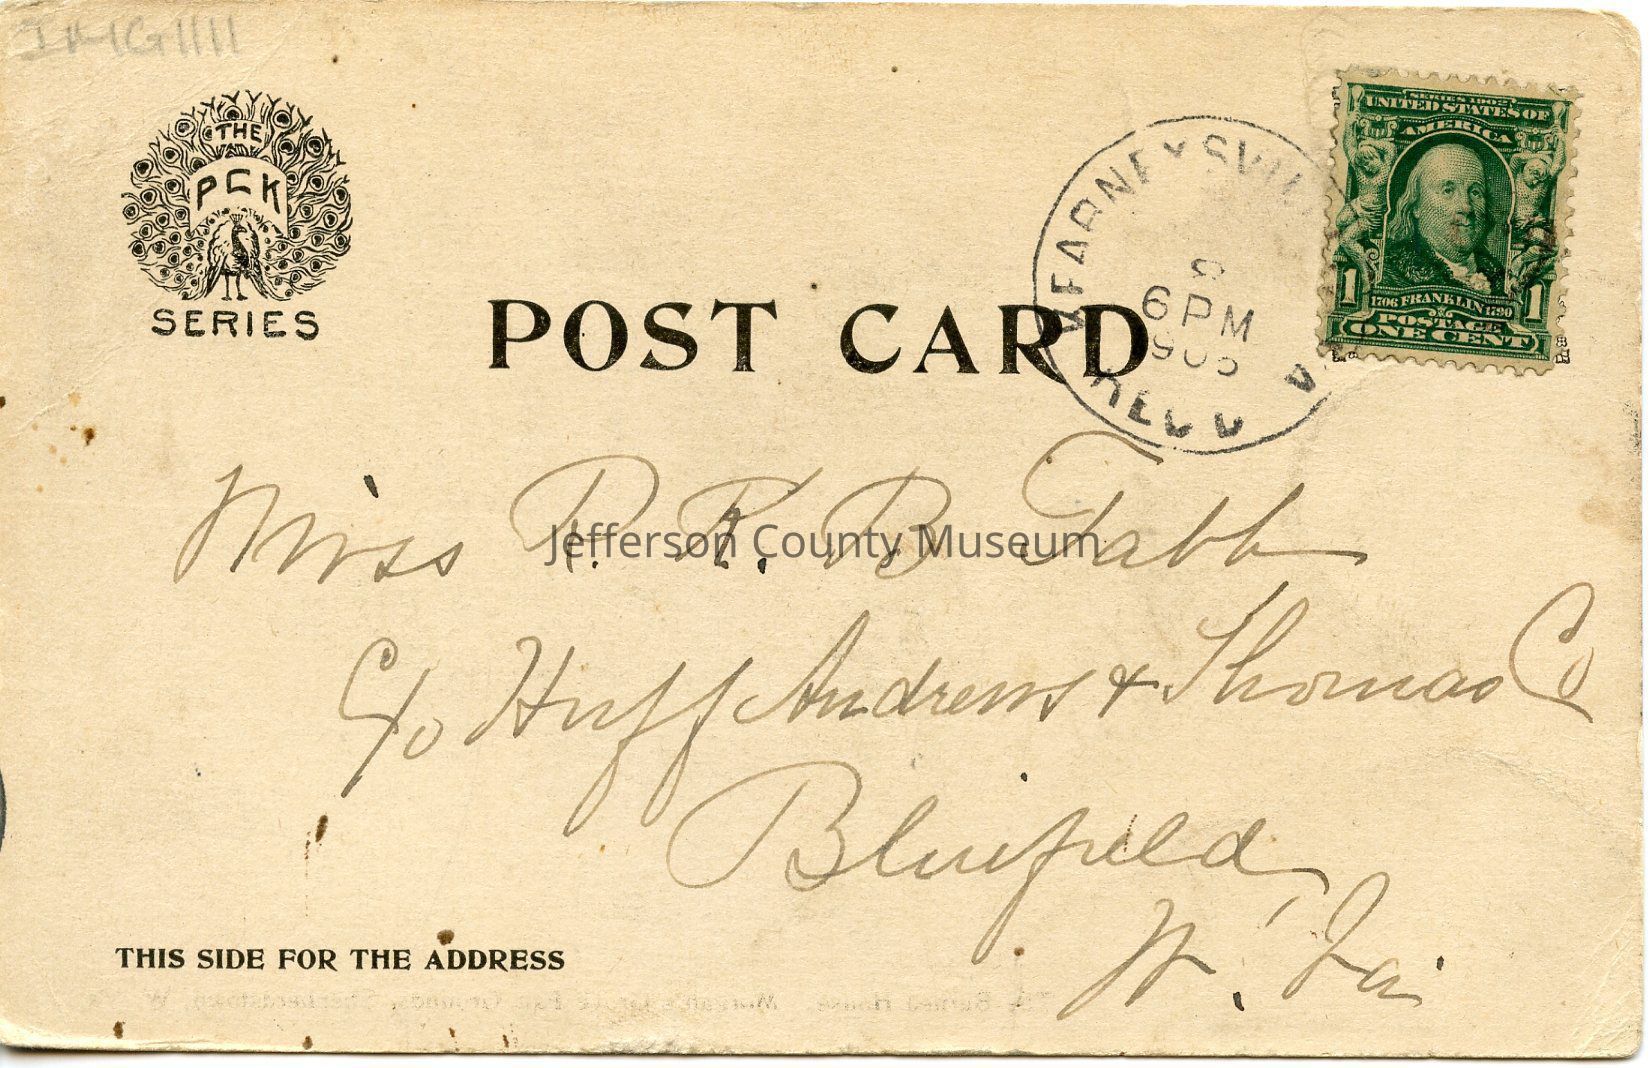 IMG1111
THE
PCK
SERIES
POST CARD
KEARNEYSVILL
6 PM
SERIES 1902
UNITED STATES OF
AMERICA
1 1706 FRANKLIN 1790 1
POSTAGE
ONE CENT
Miss P. R. B Tabb
C/o Huff Andrews & Thomas Co
Bluifield,
W. Va.
Jefferson County Museum
THIS SIDE FOR THE ADDRESS